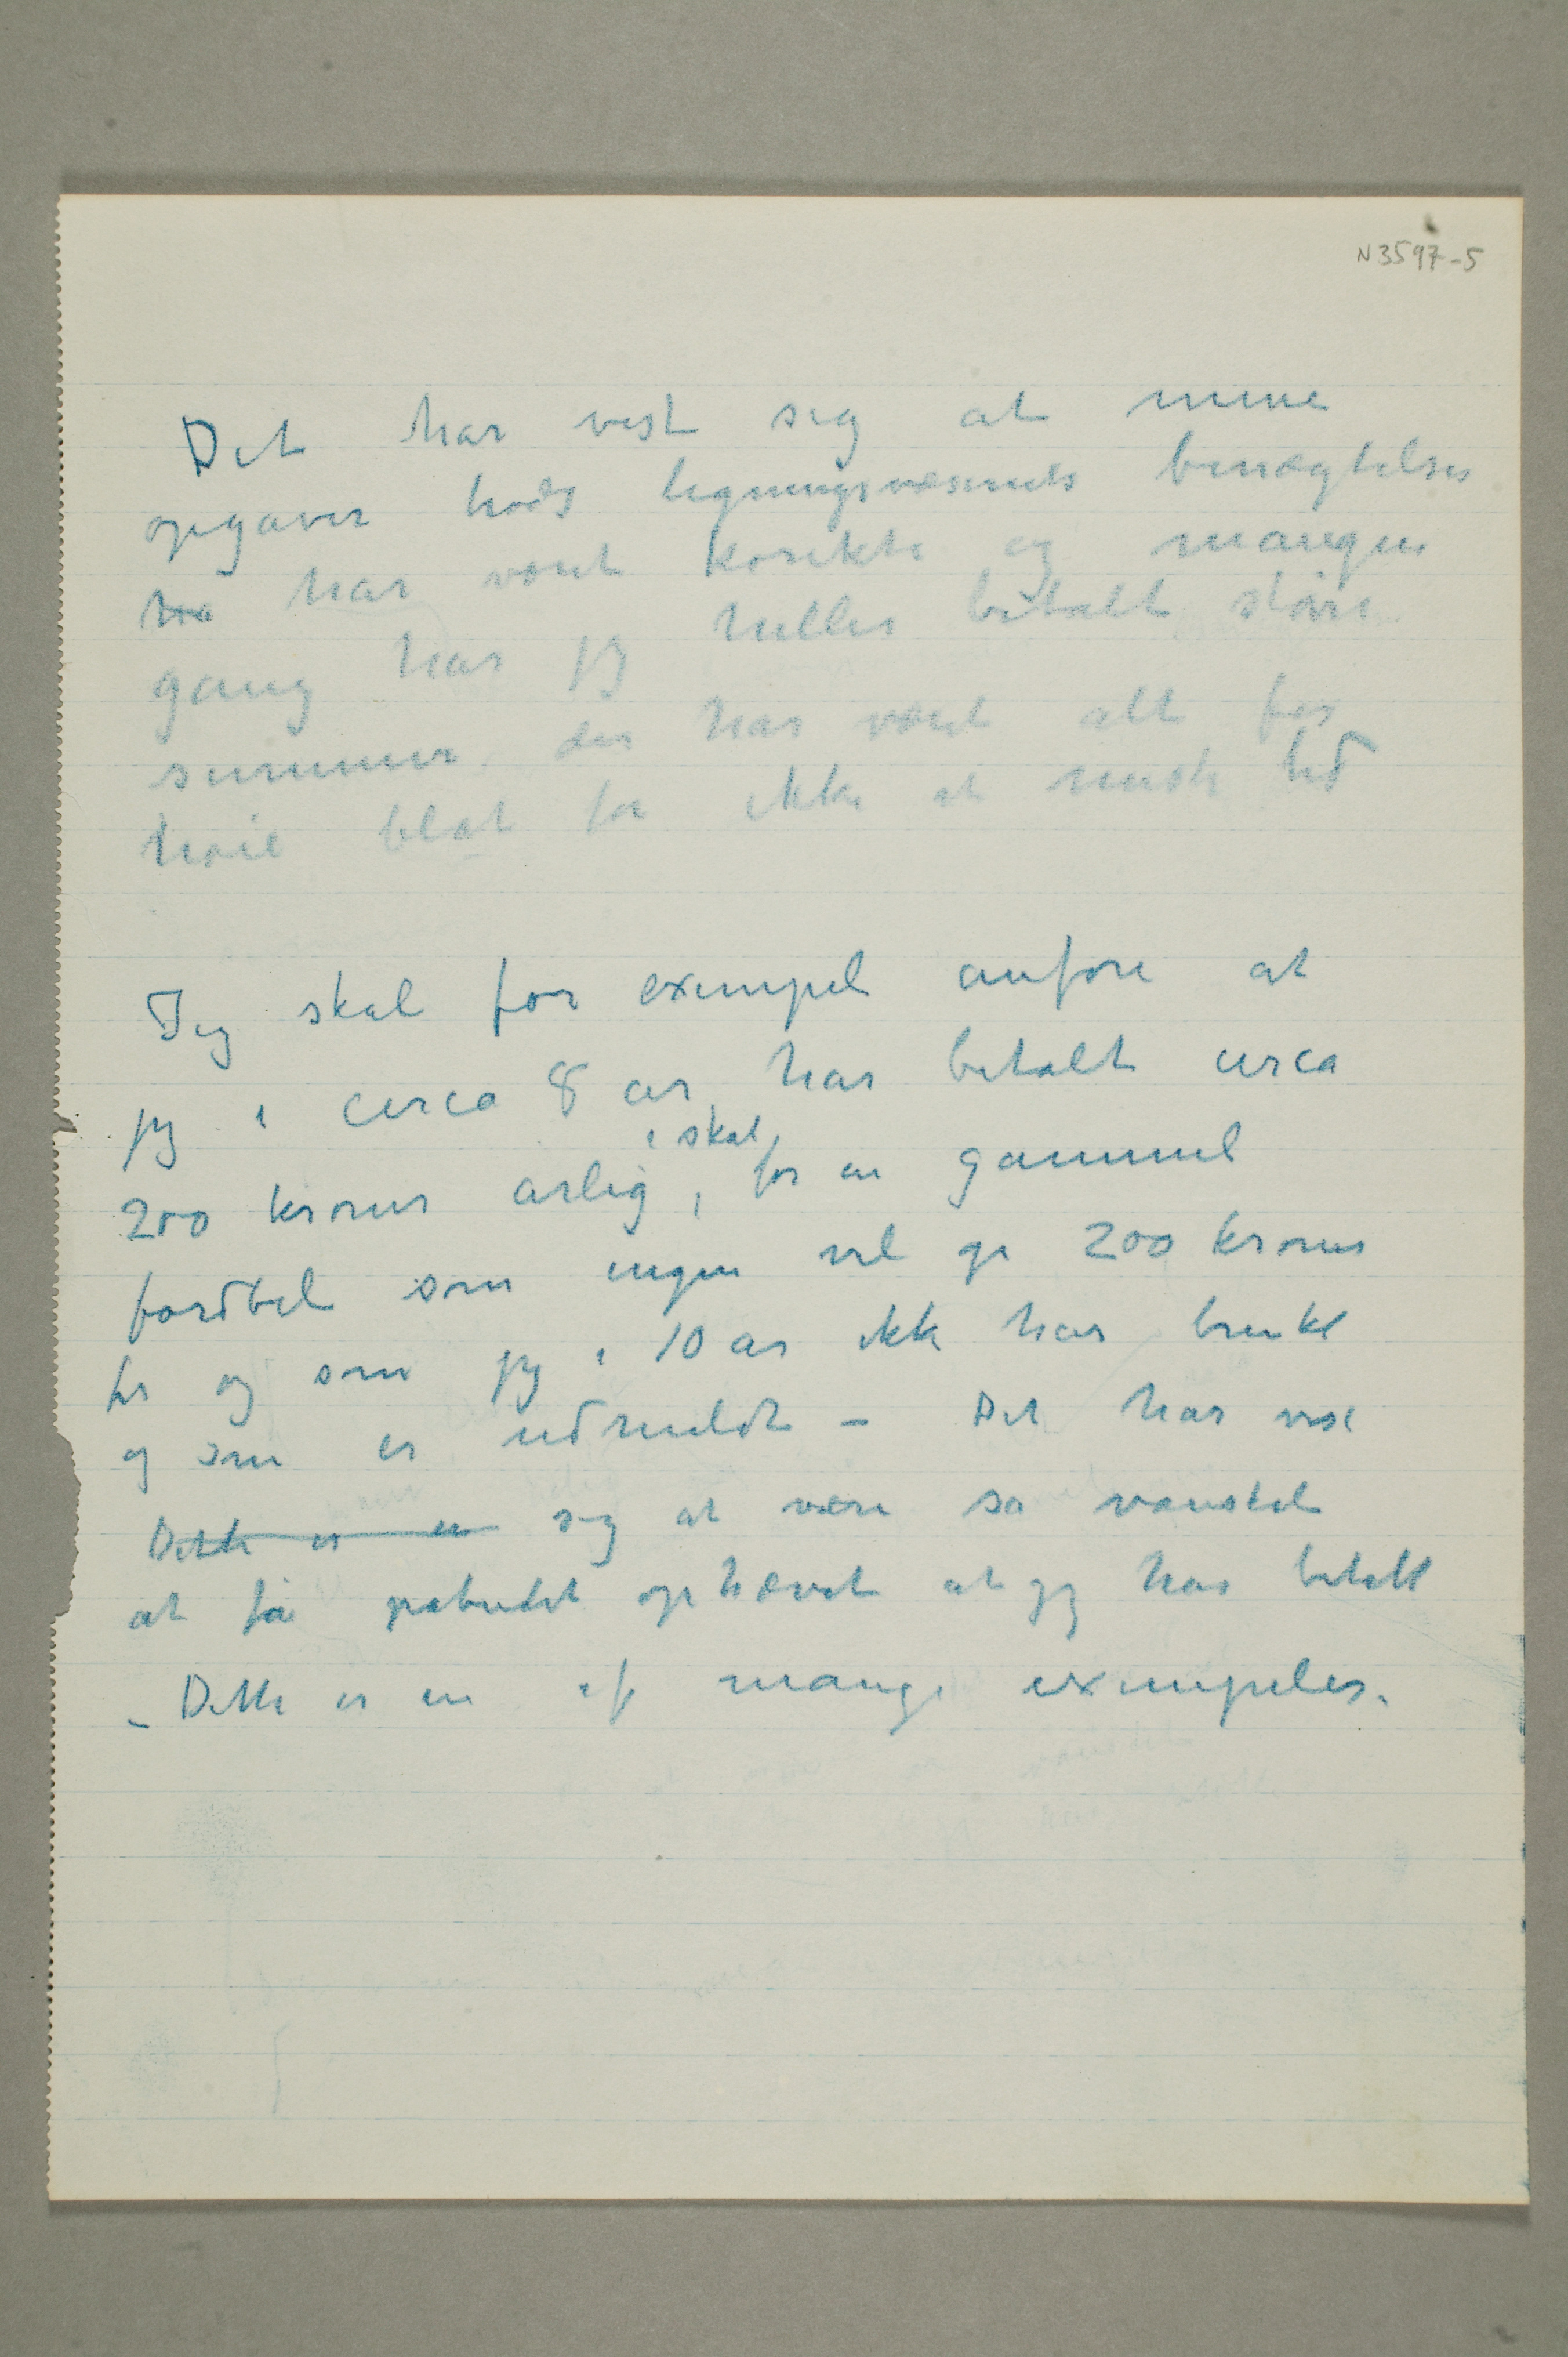 N 3597-5
Det har vist sig at mine
opgaver trods ligningsvæsenets benægtelser
har været korekte og mangen
gang har jeg heller betalt større
summer der har været alt for
høie blot for ikke at miste tid
Jeg skal for exempel anføre at
jeg i circa 8 ar har betalt circa
i skat
200 kroner arlig, for en gammel
fordbil som ingen vil gi 200 kroner
for og som jeg i 10 ar ikke har brukt
og som er udmeldt – Det har vist
Dette er en sig at være sa vanskelt
at få pabudet ophævet at jeg har betalt
– Dette er en af mange exempeler.